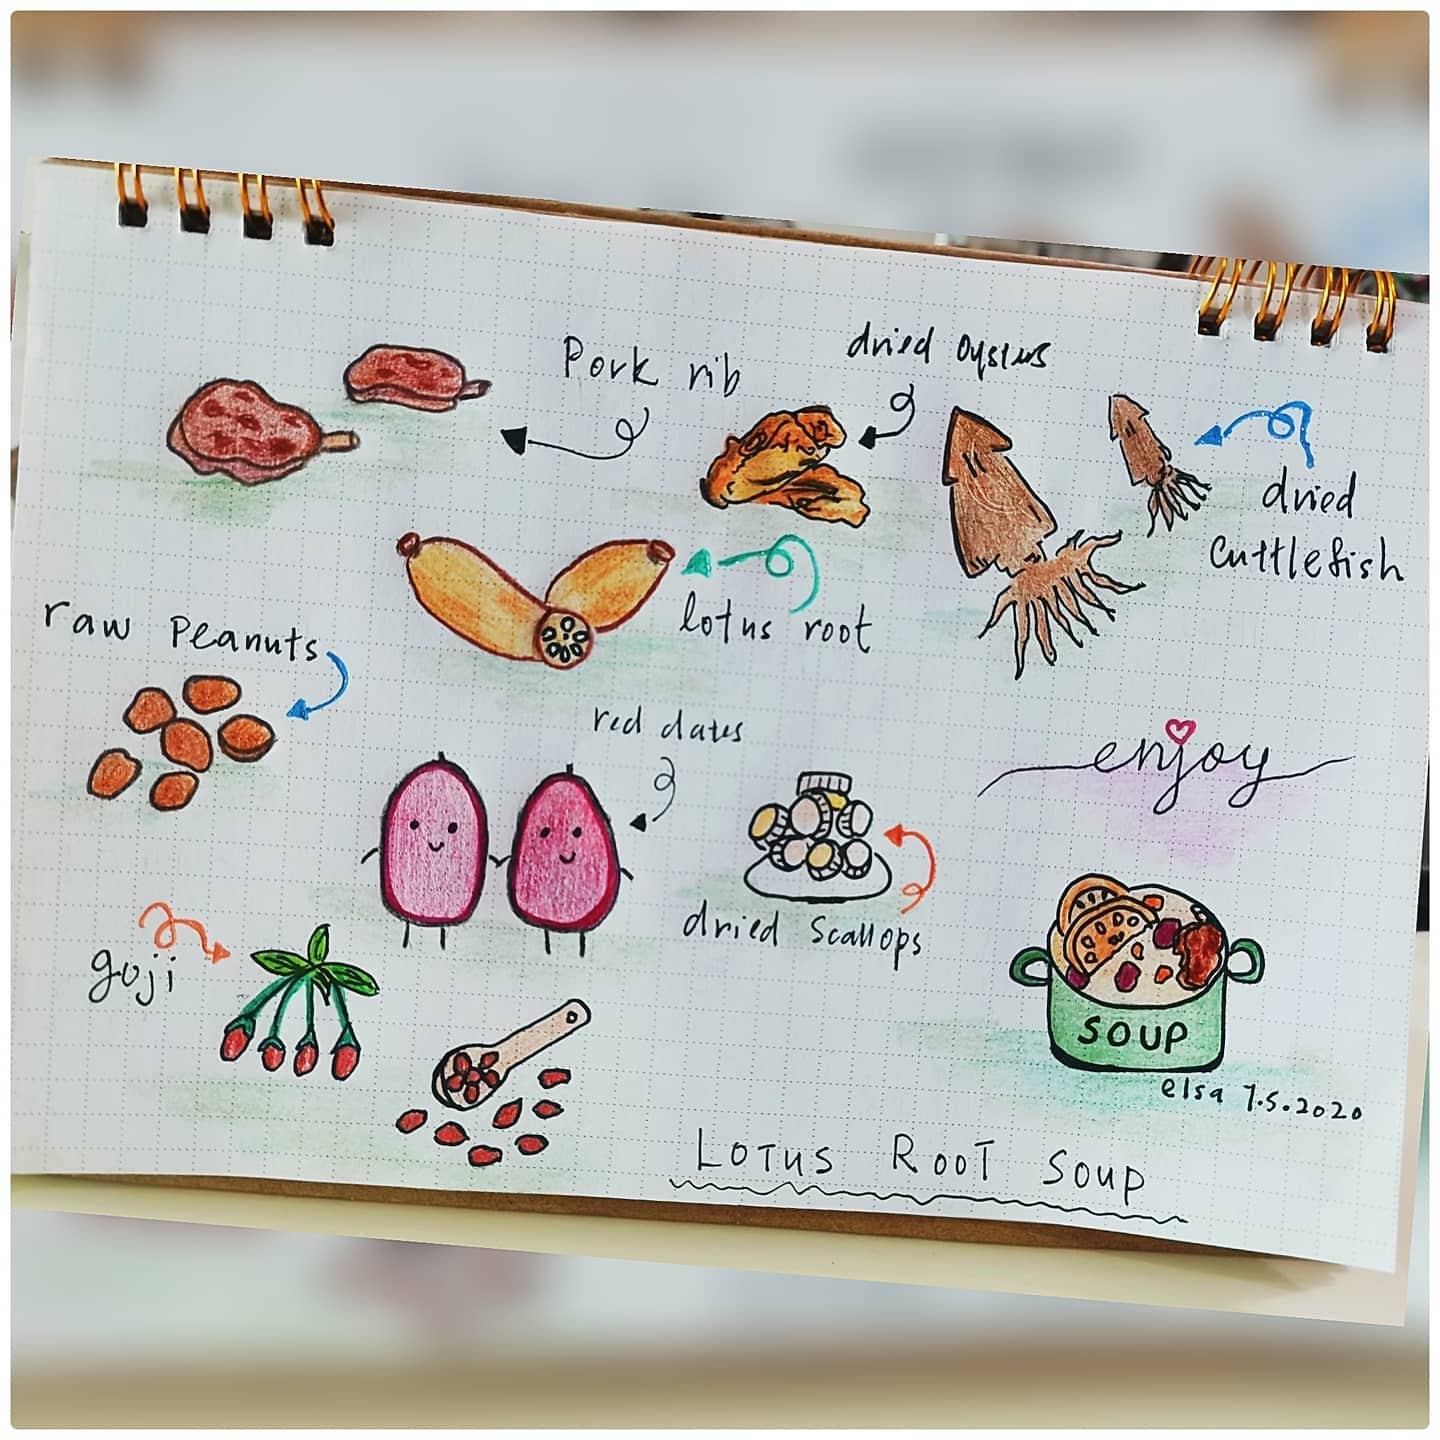 Pork rib
dried oysters
dried
cuttlefish
lotus root
raw peanuts
red dates
enjoy
dried scallops
goji
SOUP
elsa 7.5.2020
LOTUS ROOT SOUP